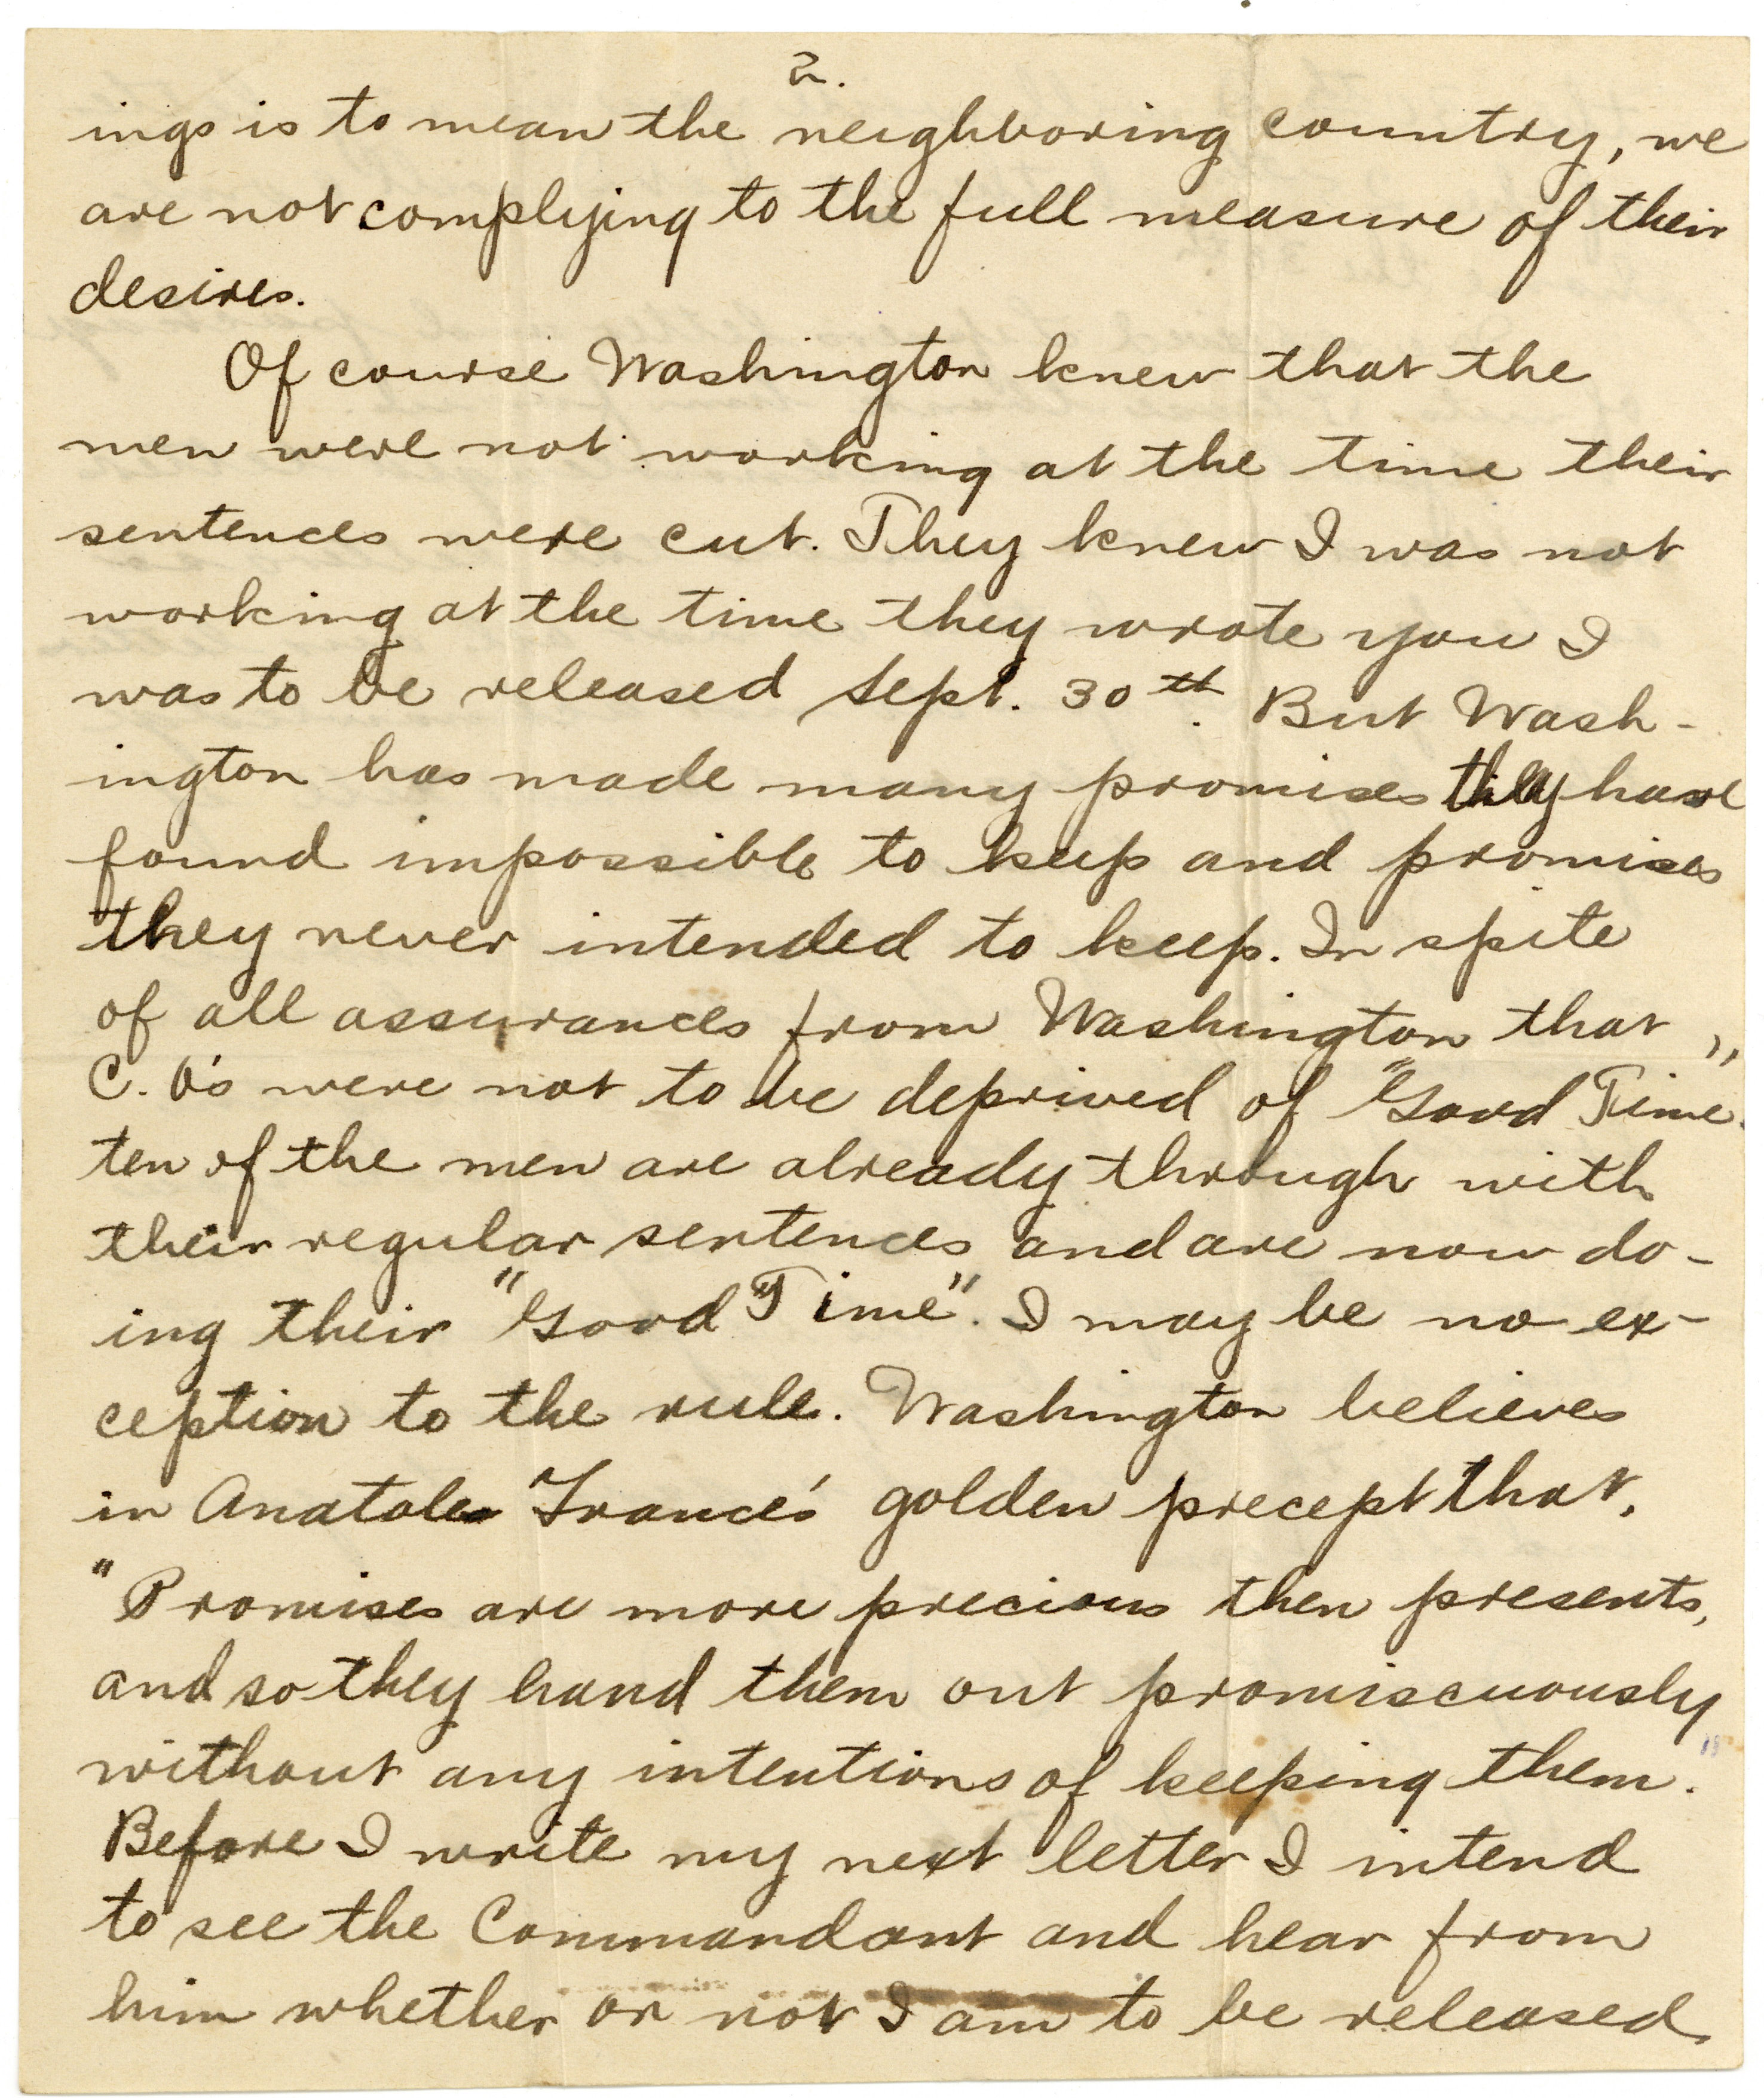 2.
ings is to mean the neighboring country, we
are not complying to the full measure of their
desires.
Of course Washington knew that the
men were not working at the time their
sentences were cut. They knew I was not
working at the time they wrote you I
was to be released Sept. 30th. But Wash-
ington has made many promises they have
found impossible to keep and promises
they never intended to keep. In spite
of all assurances from Washington that
C. O's were not to be deprived of "Good Time"
ten of the men are already through with
their regular sentences and are now do-
ing their "Good Time". I may be no ex-
ception to the rule. Washington believes
in Anatole France's golden precept that,
"Promises are more precious then presents,
and so they hand them out promiscuously
without any intentions of keeping them."
Before I write my next letter I intend
to see the Commandant and hear from
him whether or not I am to be released